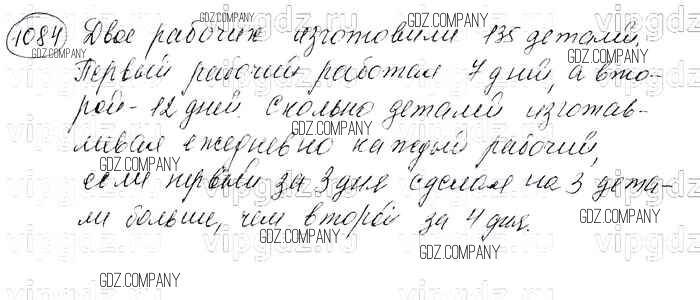 1084 Двое рабочих изготовили 135 деталей.
Первый рабочий работал 7 дней, а вто-
рой - 12 дней. Сколько деталей изготав-
ливал ежедневно каждый рабочий,
если первый за 3 дня сделал на 3 дета-
ли больше, чем второй за 4 дня.
GDZ.COMPANY
GDZ.COMPANY
GDZ.COMPANY
GDZ.COMPANY
GDZ.COMPANY
GDZ.COMPANY
GDZ.COMPANY
GDZ.COMPANY
GDZ.COMPANY
GDZ.COMPANY